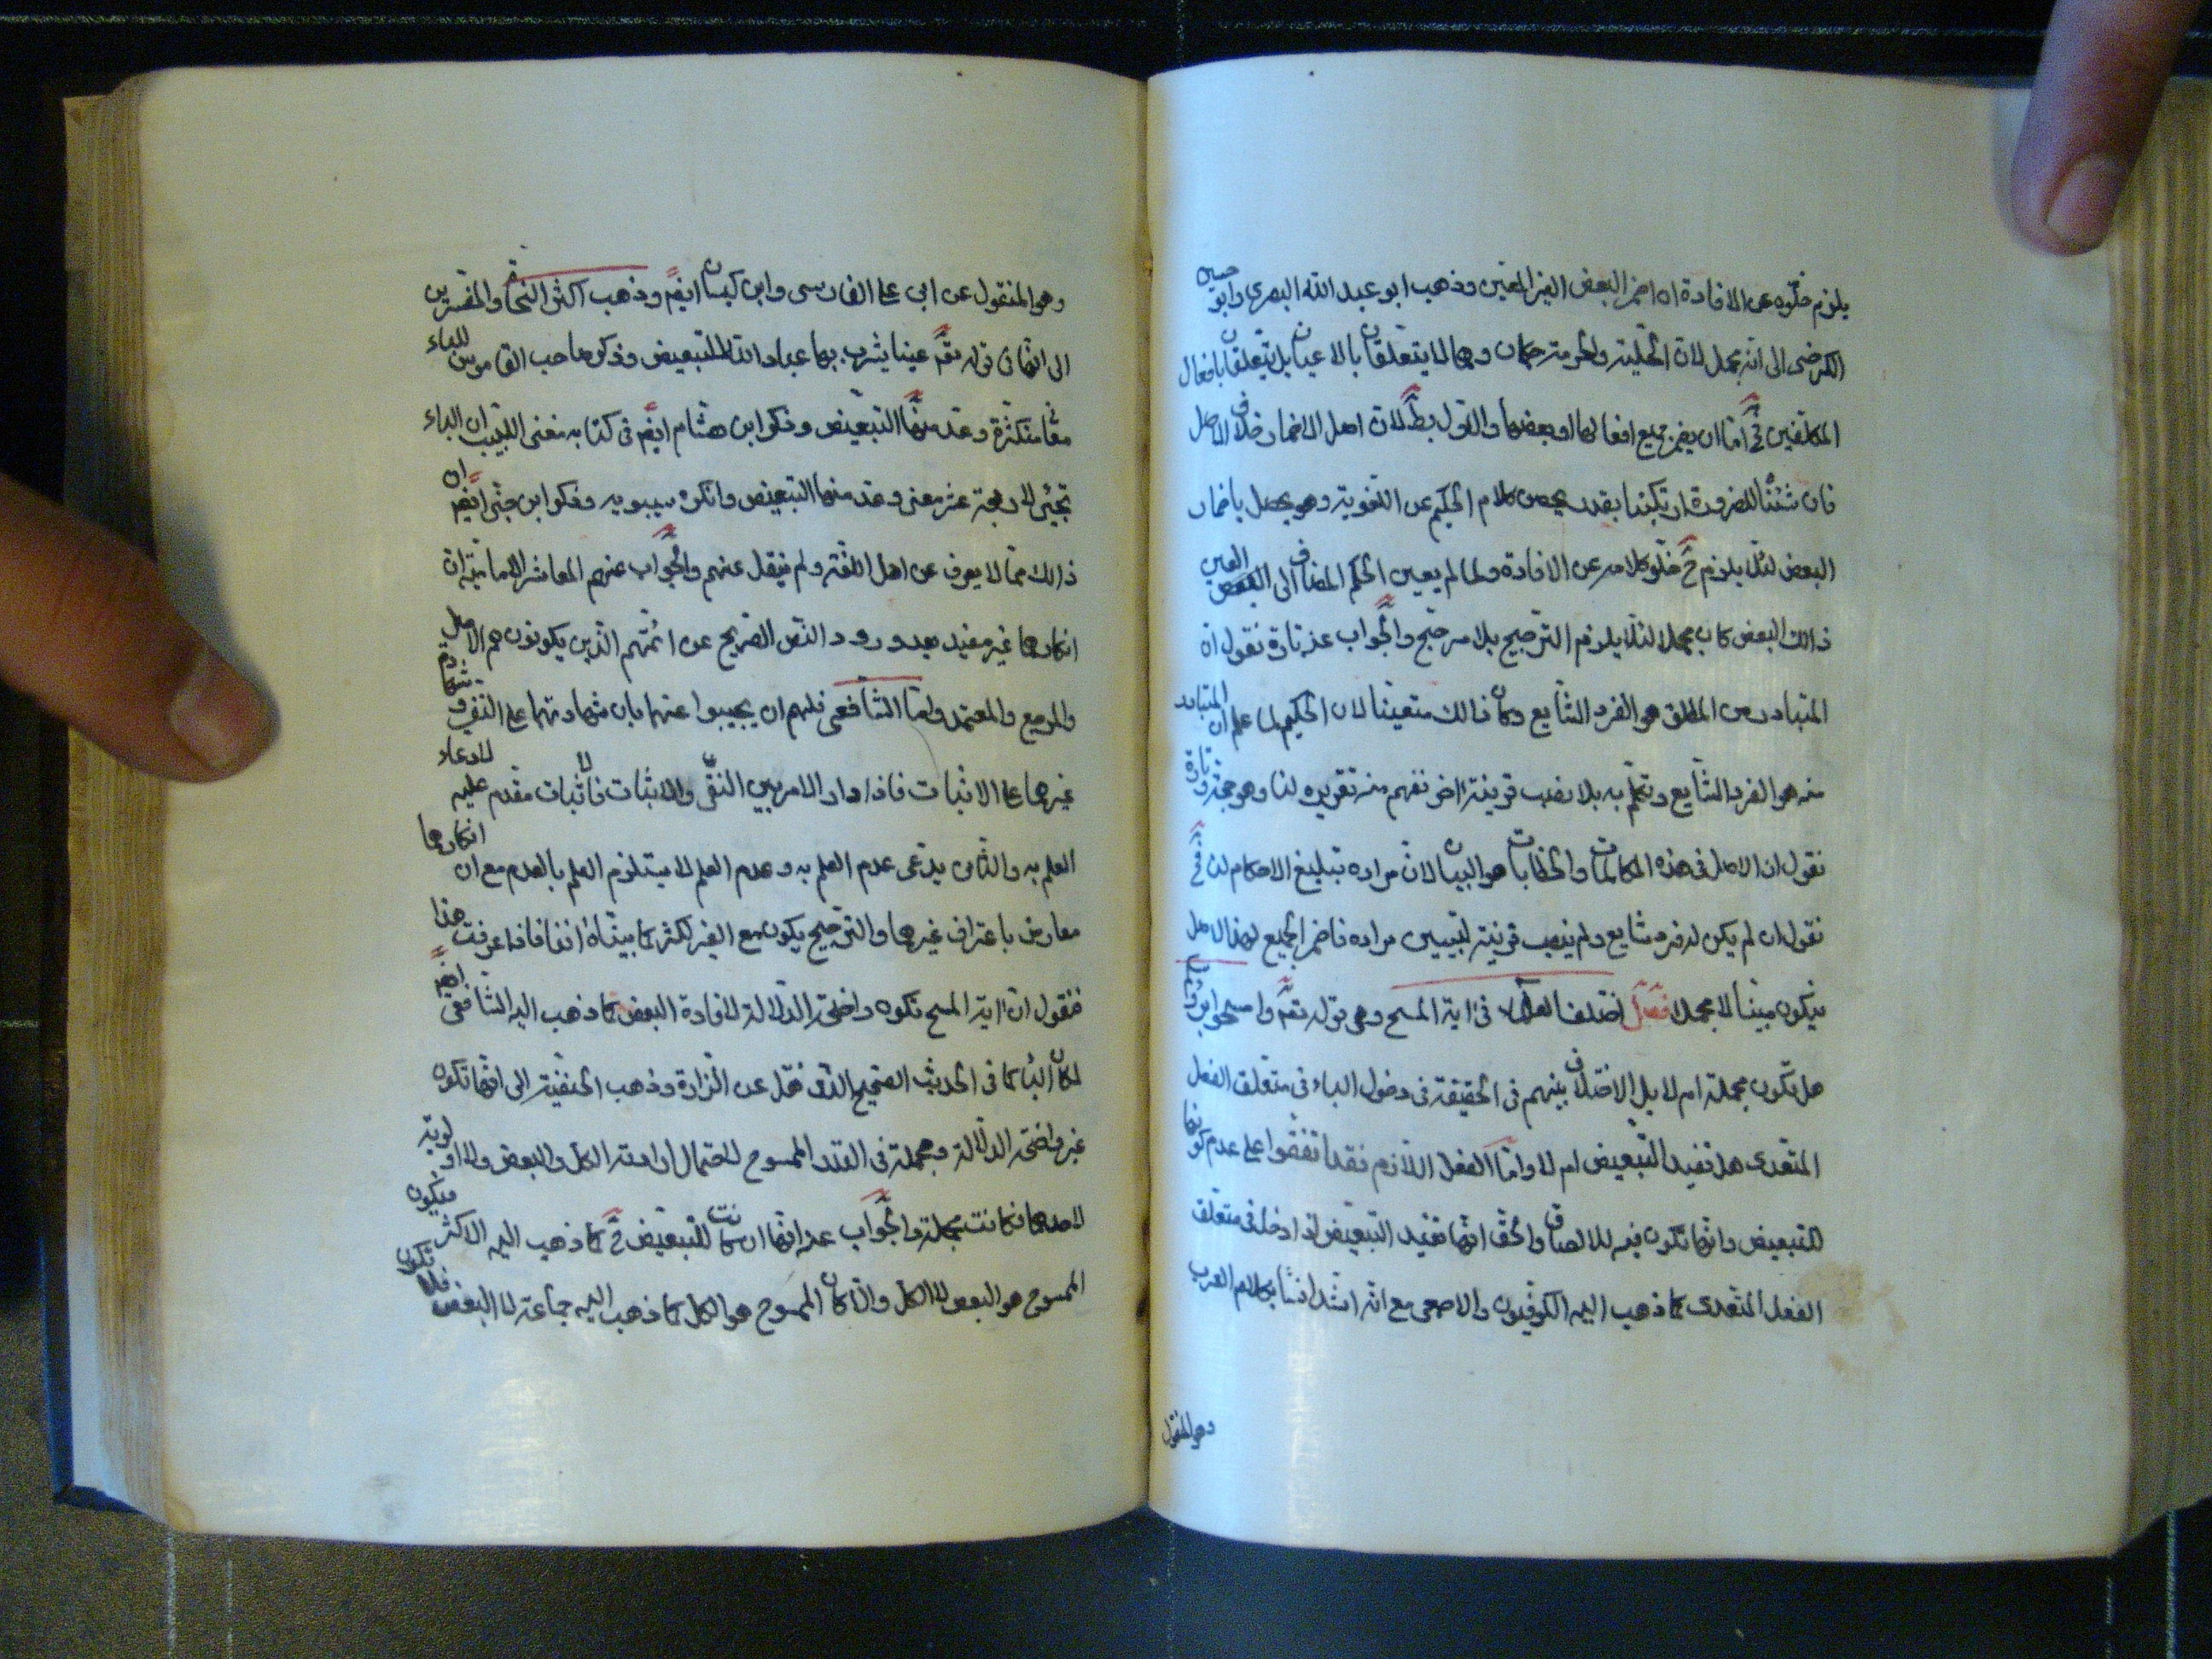 يلزم خلوه عن الافادة ان اضمر البعض الغير المعين وذهب ابو عبد الله البصرى وابو حسين
الكرخى الى انه مجمل لان الحلية والحرمة حكمان وهما لا يتعلقان بالاعيان بل يتعلقان بافعال
المكلفين فح اما ان يضمر جميع افعالها او بعضها والقول بط لان اصل الاضمار خلاف الاصل
فان شئنا للضرورة ارتكبنا بقدر كلام الحكيم عن اللغوية وهو يحصل باضمار
البعض لئلا يلزم ح خلو كلامه عن الافادة ولما لم يعين الحكم المضاف الى العين
ذالك البعض كان مجملا لئلا يلزم الترجيح بلا مرجح والجواب عنه تارة نقول ان
المتبادر من المطلق هو الفرد الشايع وكان ذالك متعينا لان الحكيم لما علم ان المتبادر
منه هو الفرد الشايع وتكلم به بلا نصب قرينة اخر نفهم منه تقريره لنا وهو حجة وتارة
نقول ان الاصل فى هذه المكالمات والخطابات هو البيان لان مراده تبليغ الاحكام لنا فح
نقول ان لم يكن له فرد شايع ولم ينصب قرينة لتبيين مراده فاضمر الجميع لهذا الاصل
فيكون مبينا لا مجملا فصل اختلف العلماء فى اية المسح وهى قوله تع وامسحوا برؤسكم
هل تكون مجملة ام لا بل الاختلاف بينهم فى الحقيقة فى دخول الباء فى متعلق الفعل
المتعدى هل تفيد التبعيض ام لا واما الفعل اللازم فقد اتفقوا على عدم كونها
للتبعيض وانها تكون فيه للالصاق والحق انها تفيد التبعيض اذا دخل فى متعلق
الفعل المتعدى كما ذهب اليه الكوفيون والاصمعى مع انه اشد انسا بكلام العرب
وهو المنقول
وهو المنقول عن ابى على الفارسى وابن كيسان ايضم وذهب اكثر النحاة والمفسرين
الى انها فى قوله تع عينا يشرب بها عباد الله للتبعيض وذكر صاحب القاموس للباء
معا متكثرة وعد منها التبعيض وذكر ابن هشام ايضم فى كتابه مغنى اللبيب ان الباء
تجئ لاربعة عشر معنى وعد منها التبعيض وانكره سيبويه وذكر ابن جنى ايضم ان
ذالك مما لا يعرف عن اهل اللغة ولم ينقل عنهم والجواب عنهم المعاشر الامامية ان
انكارهما غير مفيد بعد ورود النص الصريح عن ائمتهم الذين يكونون هم الاصل
والمرجع والمعتمد واما الشافعى فلهم ان يجيبوا عنهما بان شهادتهما على النفى وشهادة
غيرهما على الاثبات فاذا دار الامر بين النفى والاثبات فالاثبات مقدم عليه لادعاء
العلم به والثانى يدعى عدم العلم به وعدم العلم لا يستلزم العلم بالعدم مع ان انكارهما
معارض باعتراف غيرهما والترجيح يكون مع الغير لكثرة كما بيناه انفا فاذا عرفت هذا
فنقول ان اية المسح تكون واضحة الدلالة لافادة البعض كما ذهب اليه الشافعى ايضم
لمكان الباء كما فى الحديث الصحيح الذى نقل عن الزرارة وذهب الحنفية الى انها تكون
غير واضحة الدلالة ومجملة فى القدر الممسوح لاحتمال ارادة الكل والبعض ولا اولوية
لاحدهما فكانت مجملة والجواب عنه انها ان كانت للتبعيض فح كما ذهب اليه الاكثر فيكون
الممسوح هو البعض لا الكل والا كان الممسوح هو الكل كما ذهب اليه جماعة لا البعض فلا تكون